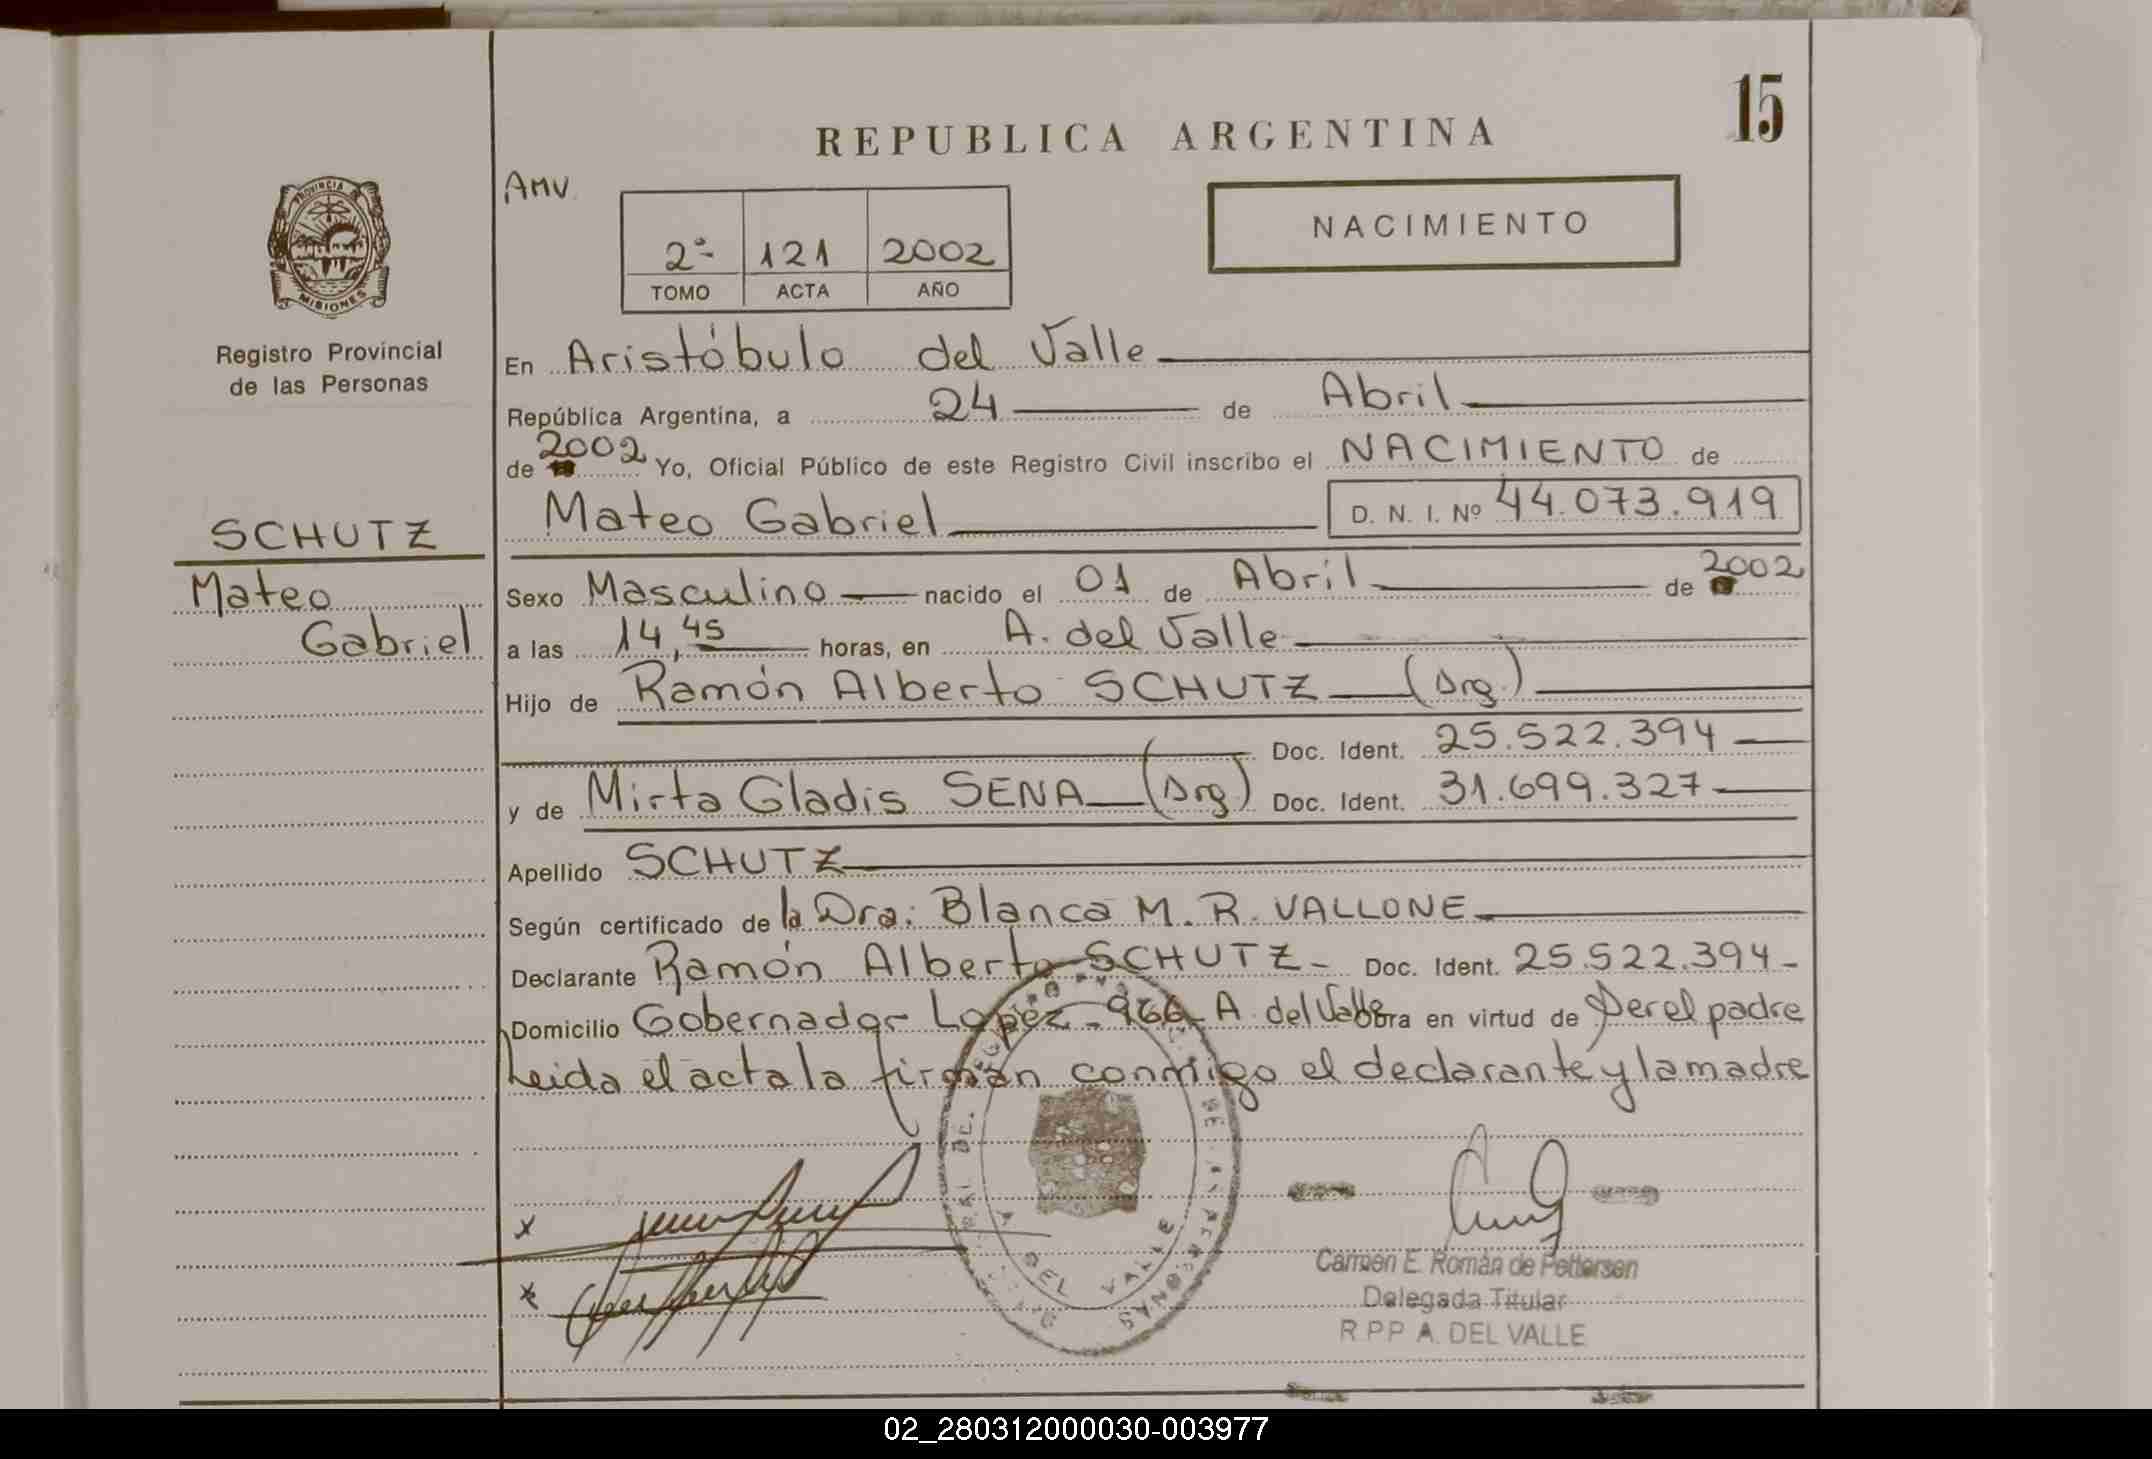 15
REPUBLICA ARGENTINA
AMV.
NACIMIENTO
2º 121 2002
TOMO ACTA AÑO
PROVINCIA DE
MISIONES
Registro Provincial
de las Personas
En Aristóbulo del Valle
República Argentina, a 24 de Abril
de 2002 Yo, Oficial Público de este Registro Civil inscribo el NACIMIENTO de
Mateo Gabriel D. N. I. Nº 44.073.919
SCHUTZ
Mateo
Gabriel
Sexo Masculino nacido el 01 de Abril de 2002
a las 14,45 horas, en A. del Valle
Hijo de Ramón Alberto SCHUTZ (Arg.)
Doc. Ident. 25.522.394
y de Mirta Gladis SENA (Arg.) Doc. Ident. 31.699.327
Apellido SCHUTZ
Según certificado de la Dra: Blanca M. R. VALLONE
Declarante Ramón Alberto SCHUTZ - Doc. Ident. 25.522.394 -
Domicilio Gobernador Lopez - 966 - A. del Valle obra en virtud de Ser el padre
Leida el acta la firman conmigo el declarante y la madre
x
x
A DEL VALLE
Carmen E. Román de Pettersen
Delegada Titular
R.P.P. A. DEL VALLE
02_280312000030-003977